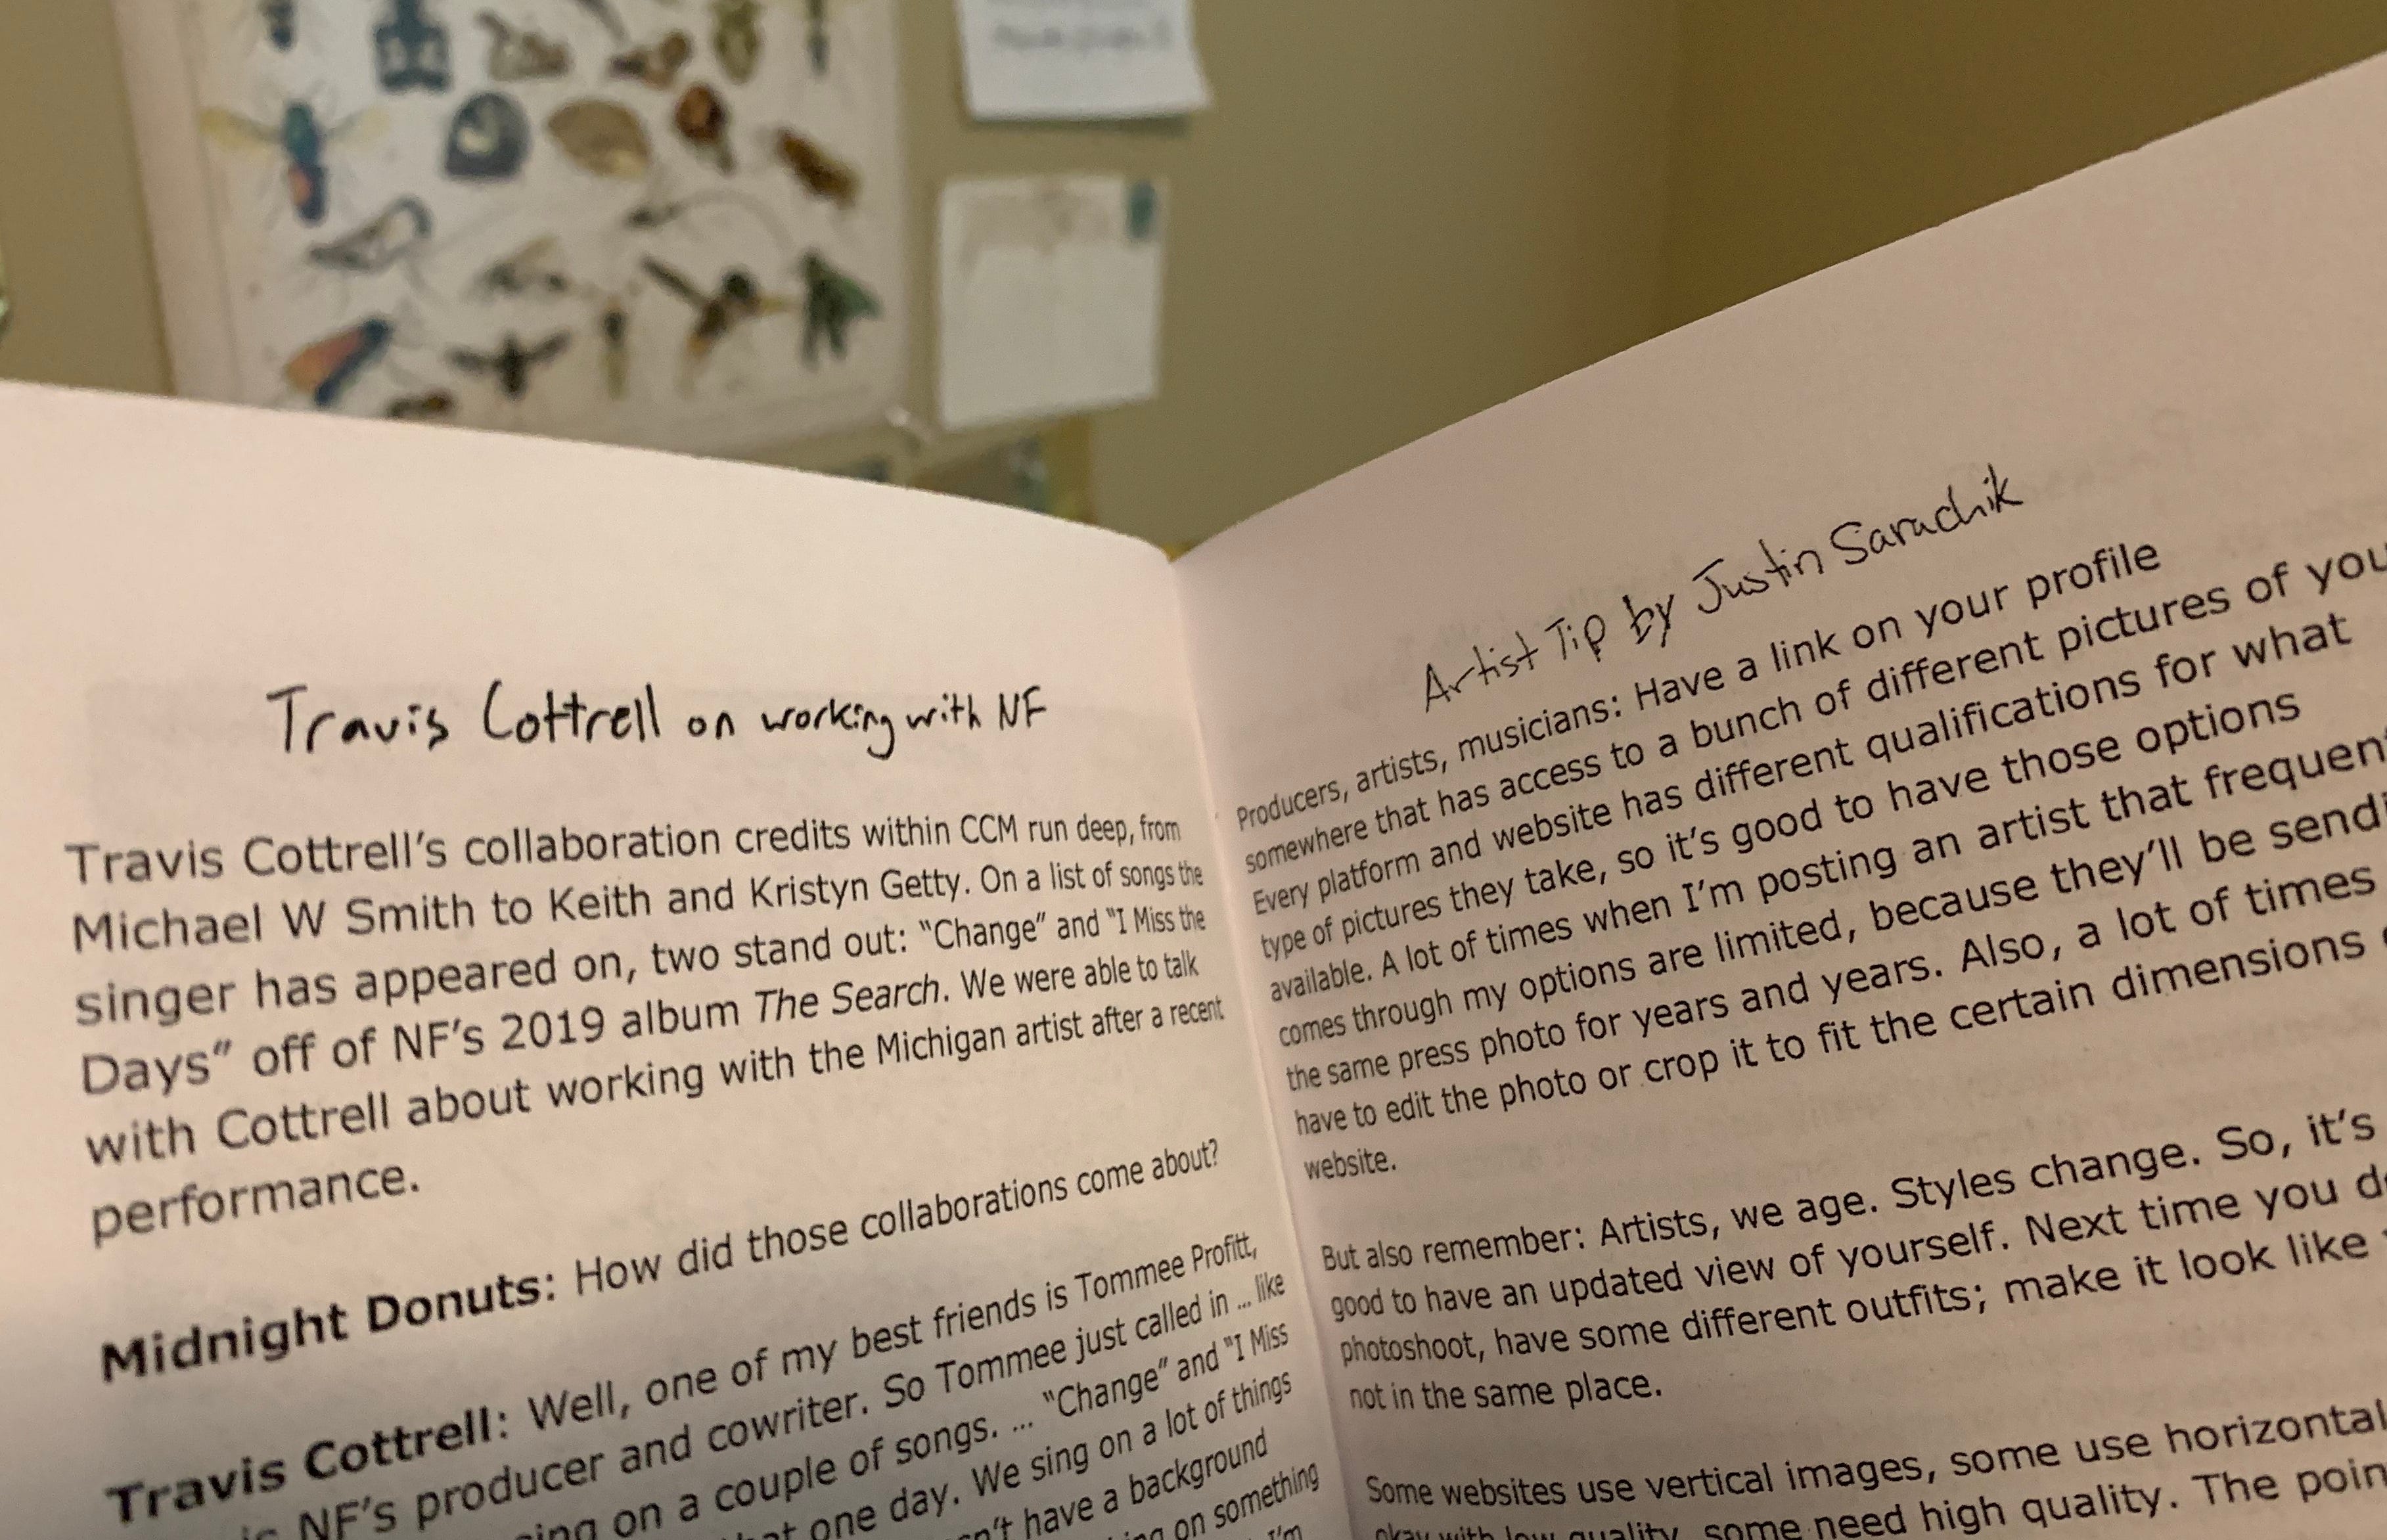 Travis Cottrell on working with NF
Travis Cottrell's collaboration credits within CCM run deep, from
Michael W Smith to Keith and Kristyn Getty. On a list of songs the
singer has appeared on, two stand out: “Change” and “I Miss the
Days” off of NF's 2019 album The Search. We were able to talk
with Cottrell about working with the Michigan artist after a recent
performance.
Midnight Donuts: How did those collaborations come about?
Travis Cottrell: Well, one of my best friends is Tommee Profitt,
is NF's producer and cowriter. So Tommee just called in ... like
on a couple of songs. ... “Change” and “I Miss
one day. We sing on a lot of things
have a background
on something
I'm
Artist Tip by Justin Sarachik
Producers, artists, musicians: Have a link on your profile
somewhere that has access to a bunch of different pictures of you
Every platform and website has different qualifications for what
type of pictures they take, so it's good to have those options
available. A lot of times when I'm posting an artist that frequent
comes through my options are limited, because they'll be sendi
the same press photo for years and years. Also, a lot of times
have to edit the photo or crop it to fit the certain dimensions
website.
But also remember: Artists, we age. Styles change. So, it's
good to have an updated view of yourself. Next time you d
photoshoot, have some different outfits; make it look like
not in the same place.
Some websites use vertical images, some use horizontal
okay with low quality, some need high quality. The poin